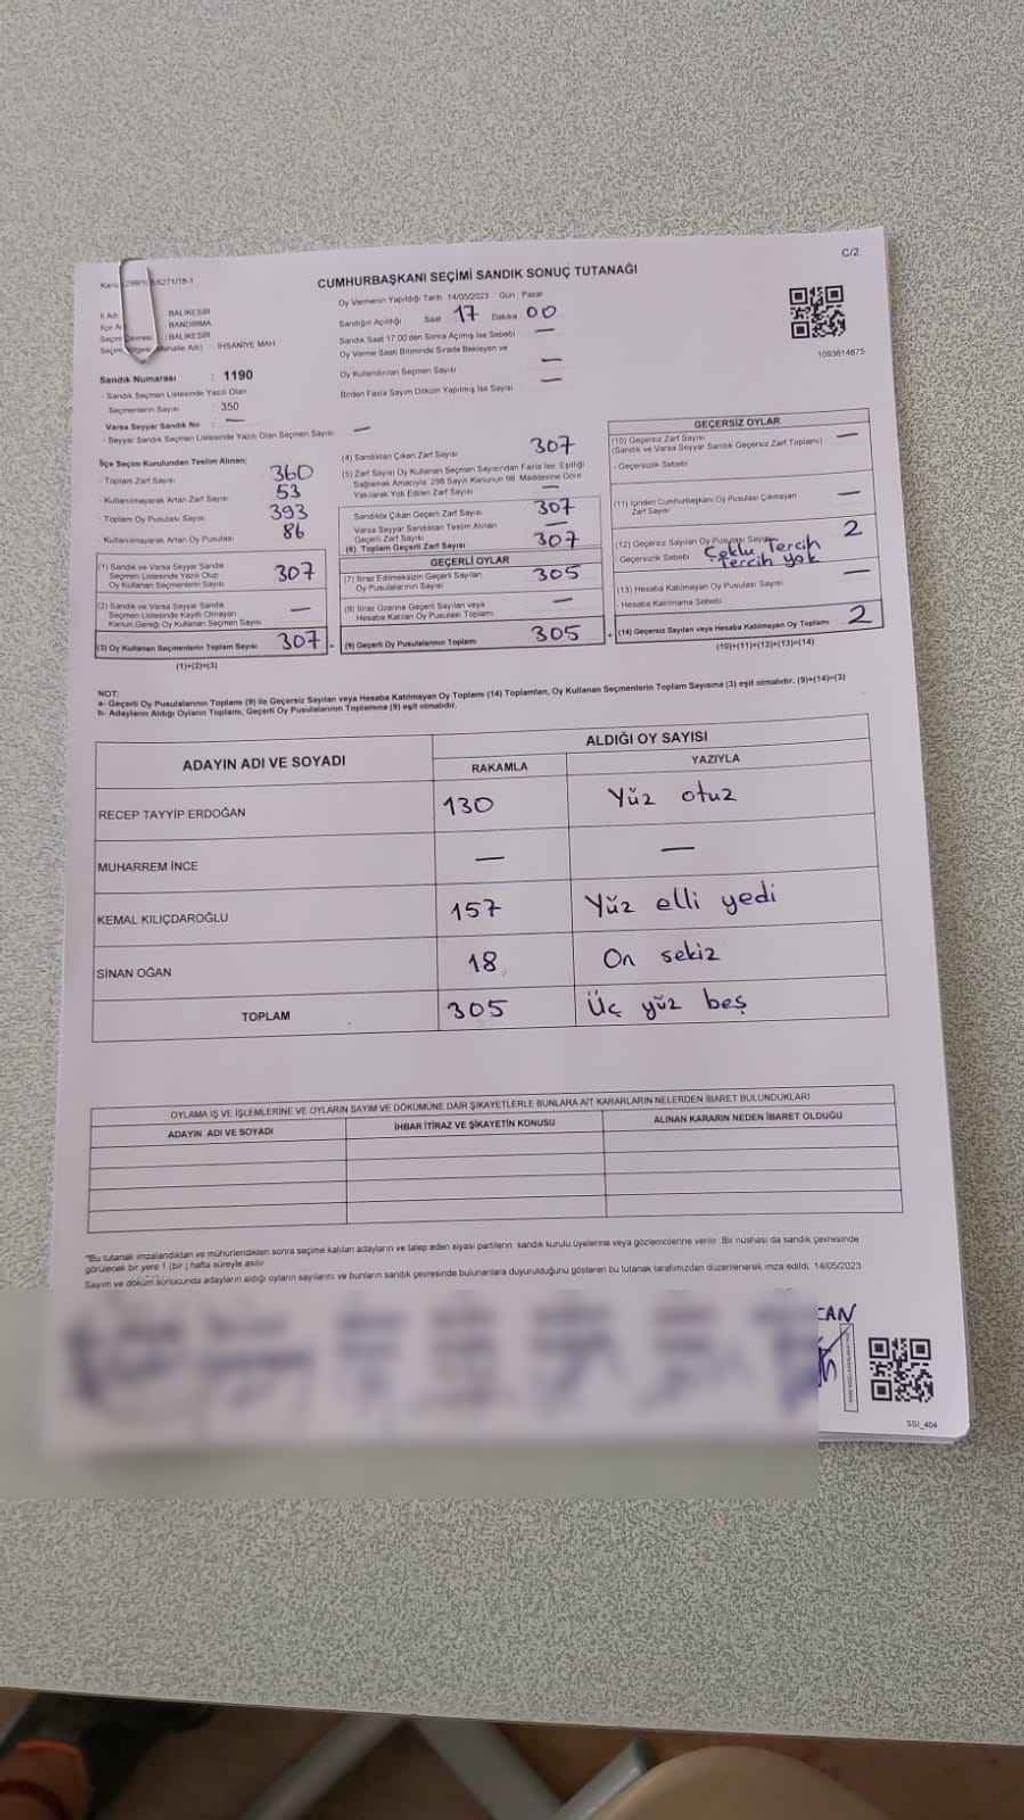 C/2
CUMHURBAŞKANI SEÇİMİ SANDIK SONUÇ TUTANAĞI
Oy Vermenin Yapıldığı Tarih 14/05/2023 Gün : Pazar
Sandığın Açıldığı Saat 17 Dakika 00
Sandık Saat 17.00'den Sonra Açılmış İse Sebebi —
Oy Verme Saati Bitiminde Sırada Bekleyen ve
Oy Kullandırılan Seçmen Sayısı —
Birden Fazla Sayım Döküm Yapılmış İse Sayısı —
1093614675
BALIKESİR
BANDIRMA
: BALIKESİR
İHSANİYE MAH
Sandık Numarası : 1190
- Sandık Seçmen Listesinde Yazılı Olan
Seçmenlerin Sayısı : 350
Varsa Seyyar Sandık No : —
- Seyyar Sandık Seçmen Listesinde Yazılı Olan Seçmen Sayısı —
İlçe Seçim Kurulundan Teslim Alınan;
- Toplam Zarf Sayısı 360
- Kullanılmayarak Artan Zarf Sayısı 53
- Toplam Oy Pusulası Sayısı 393
- Kullanılmayarak Artan Oy Pusulası 86
(1) Sandık ve Varsa Seyyar Sandık
Seçmen Listesinde Yazılı Olup
Oy Kullanan Seçmenlerin Sayısı 307
(2) Sandık ve Varsa Seyyar Sandık
Seçmen Listesinde Kaydı Olmayan
Kanun Gereği Oy Kullanan Seçmen Sayısı —
(3) Oy Kullanan Seçmenlerin Toplam Sayısı 307
(1)+(2)=(3)
(4) Sandıktan Çıkan Zarf Sayısı 307
(5) Zarf Sayısı Oy Kullanan Seçmen Sayısından Fazla İse, Eşitliği
Sağlamak Amacıyla 298 Sayılı Kanunun 98. Maddesine Göre
Yakılarak Yok Edilen Zarf Sayısı —
Sandıkta Çıkan Geçerli Zarf Sayısı 307
Varsa Seyyar Sandıktan Teslim Alınan
Geçerli Zarf Sayısı —
(6) Toplam Geçerli Zarf Sayısı 307
GEÇERLİ OYLAR
(7) İtiraz Edilmeksizin Geçerli Sayılan
Oy Pusulalarının Sayısı 305
(8) İtiraz Üzerine Geçerli Sayılan veya
Hesaba Katılan Oy Pusulası Toplamı —
(9) Geçerli Oy Pusulalarının Toplamı 305
GEÇERSİZ OYLAR
(10) Geçersiz Zarf Sayısı
(Sandık ve Varsa Seyyar Sandık Geçersiz Zarf Toplamı) —
- Geçersizlik Sebebi
(11) İçinden Cumhurbaşkanı Oy Pusulası Çıkmayan
Zarf Sayısı —
(12) Geçersiz Sayılan Oy Pusulası Sayısı 2
Geçersizlik Sebebi Çoklu Tercih
Tercih yok
(13) Hesaba Katılmayan Oy Pusulası Sayısı —
Hesaba Katılmama Sebebi
(14) Geçersiz Sayılan veya Hesaba Katılmayan Oy Toplamı 2
(10)+(11)+(12)+(13)=(14)
NOT:
a- Geçerli Oy Pusulalarının Toplamı (9) ile Geçersiz Sayılan veya Hesaba Katılmayan Oy Toplamı (14) Toplamları, Oy Kullanan Seçmenlerin Toplam Sayısına (3) eşit olmalıdır. (9)+(14)=(3)
b- Adayların Aldığı Oyların Toplamı, Geçerli Oy Pusulalarının Toplamına (9) eşit olmalıdır.
ADAYIN ADI VE SOYADI
ALDIĞI OY SAYISI
RAKAMLA YAZIYLA
RECEP TAYYİP ERDOĞAN 130 Yüz otuz
MUHARREM İNCE — —
KEMAL KILIÇDAROĞLU 157 Yüz elli yedi
SİNAN OĞAN 18 On sekiz
TOPLAM 305 Üç yüz beş
OYLAMA İŞ VE İŞLEMLERİNE VE OYLARIN SAYIM VE DÖKÜMÜNE DAİR ŞİKAYETLERLE BUNLARA AİT KARARLARIN NELERDEN İBARET BULUNDUKLARI
ADAYIN ADI VE SOYADI İHBAR İTİRAZ VE ŞİKAYETİN KONUSU ALINAN KARARIN NEDEN İBARET OLDUĞU
*Bu tutanak imzalandıktan ve mühürlendikten sonra seçime katılan adayların ve talep eden siyasi partilerin sandık kurulu üyelerine veya gözlemcilerine verilir. Bir nüshası da sandık çevresinde
görülecek bir yere 1 (bir) hafta süreyle asılır.
Sayım ve döküm sonucunda adayların aldığı oyların sayılarını ve bunların sandık çevresinde bulunanlara duyurulduğunu gösteren bu tutanak tarafımızdan düzenlenerek imza edildi. 14/05/2023
CAN
SSI_404